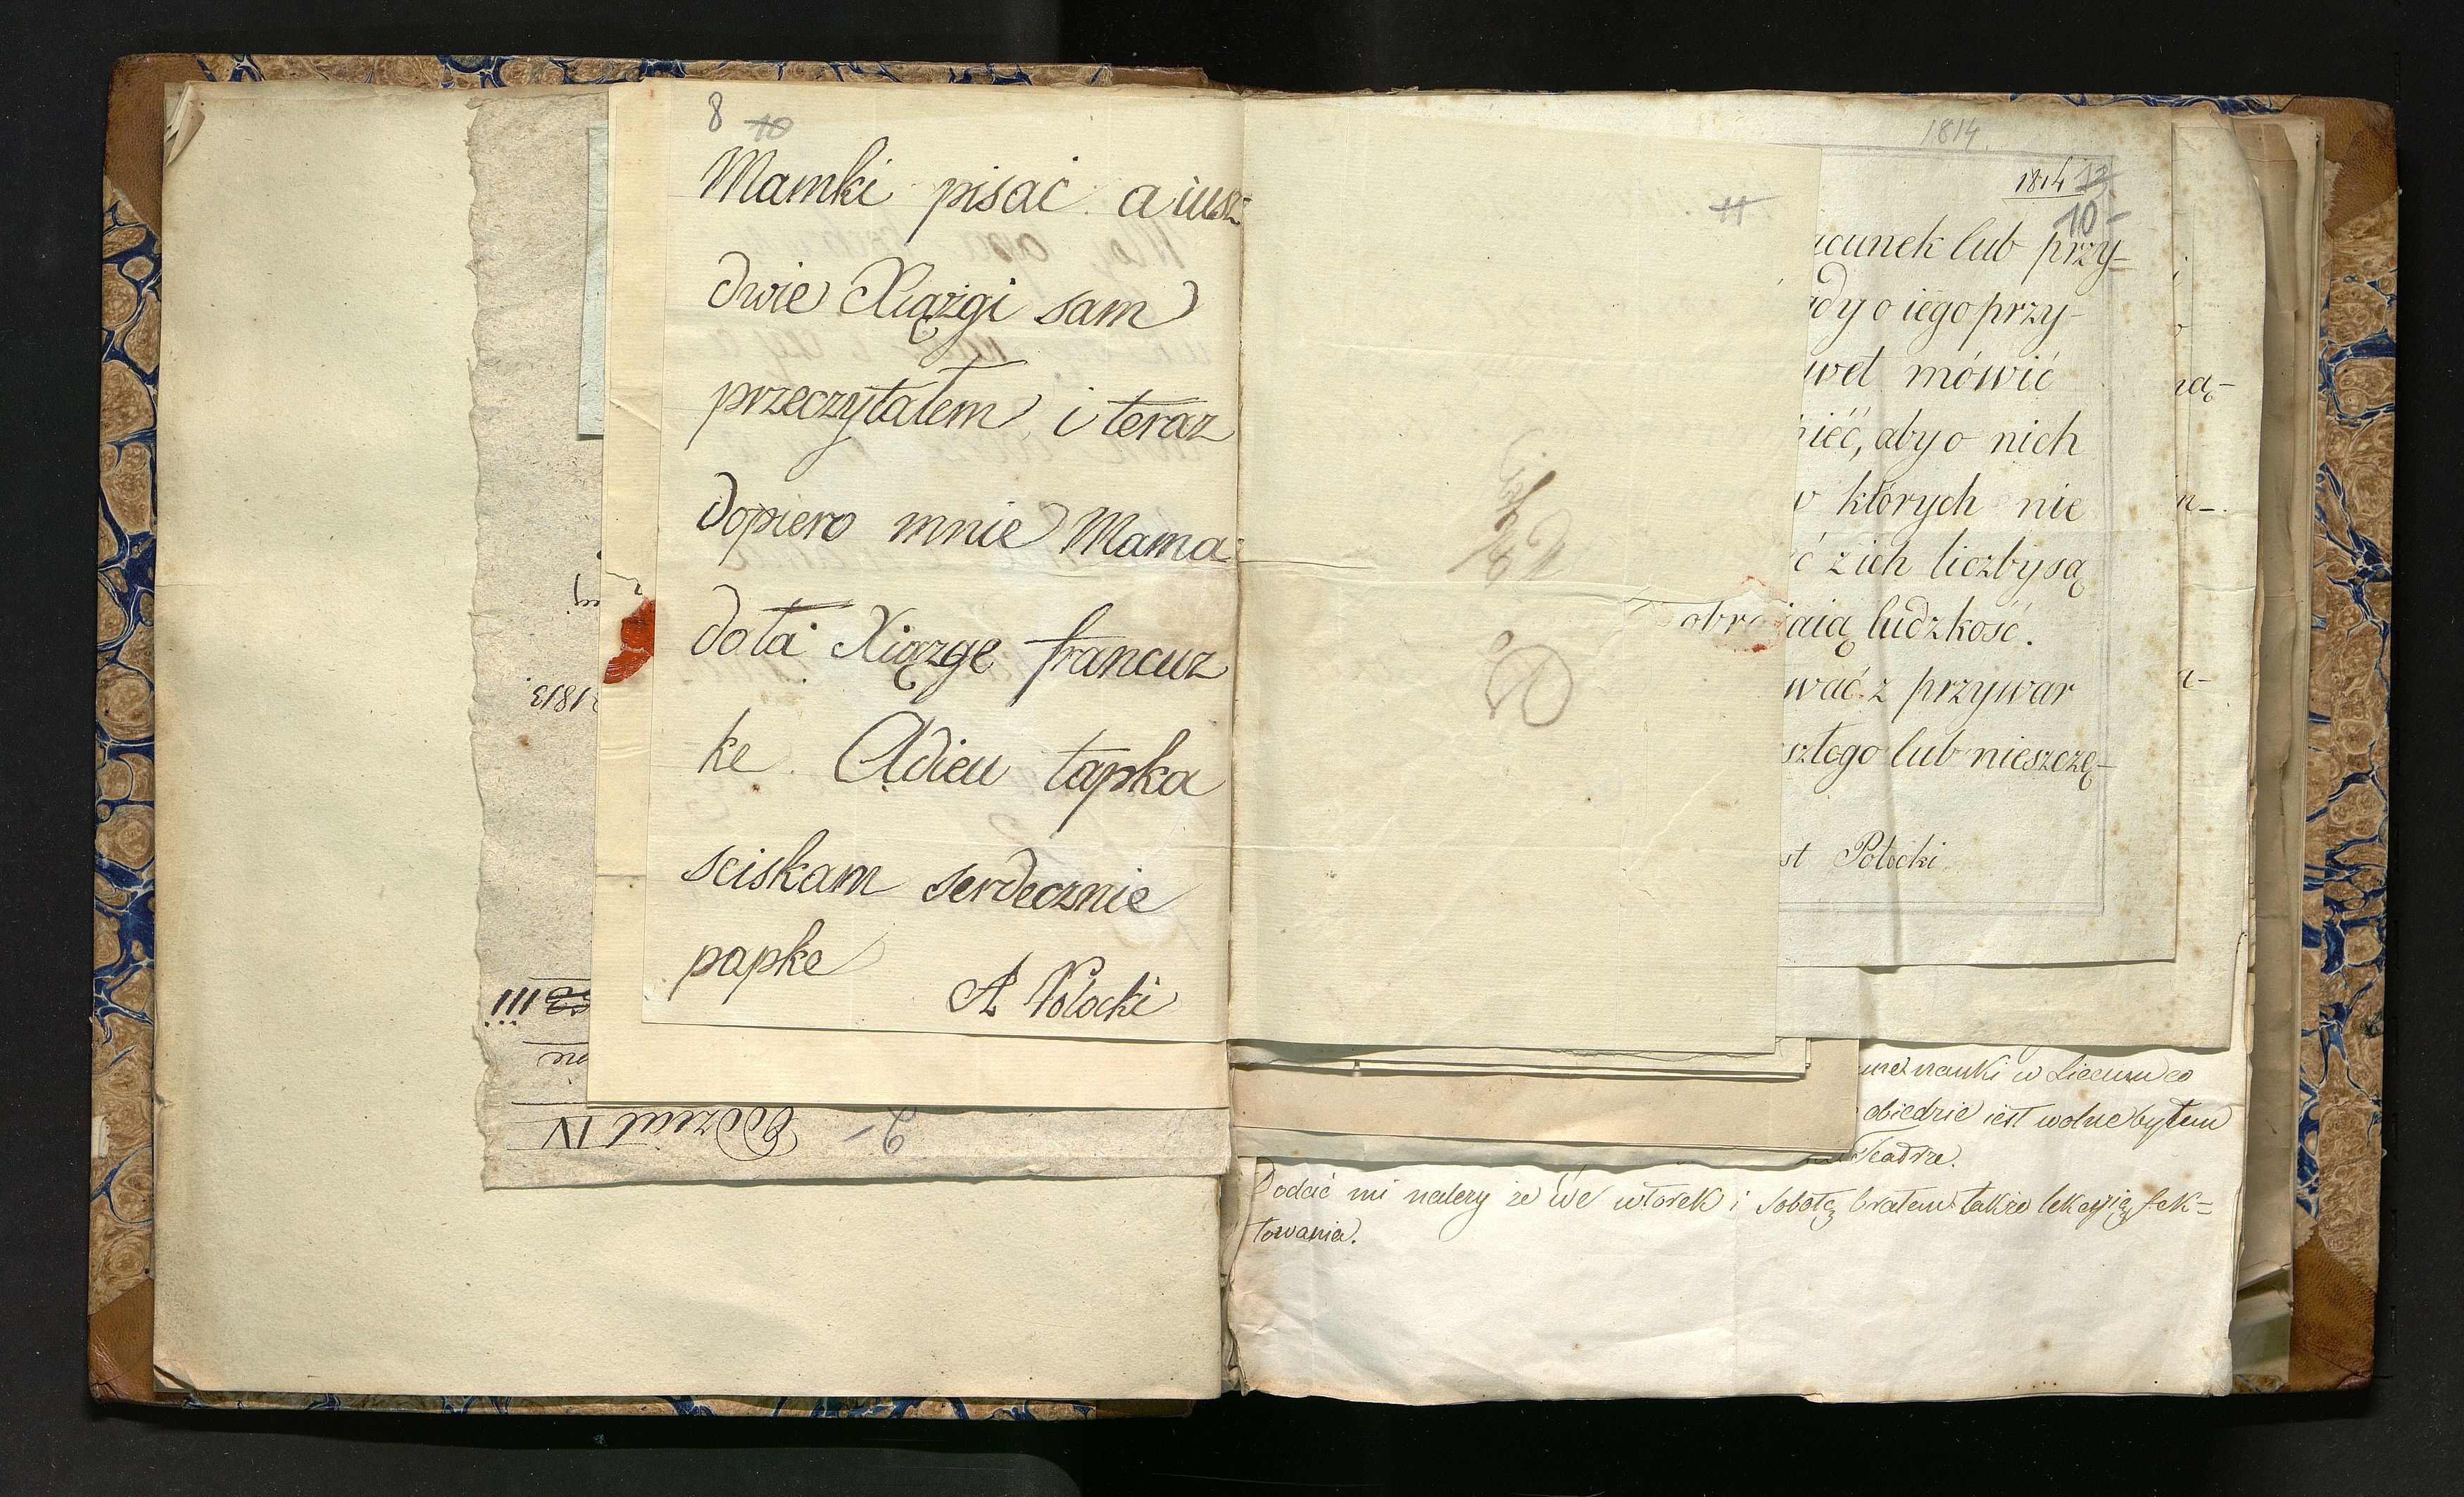 8 10
Mamki pisać a iusz
dwie Xiązgi sam
przeczytałem i teraz
dopiero mnie Mama
dała Xiązge francuz
ke. Adieu łapka
sciskam serdecznie
papke
A Potocki
1813.
III
Oddział IV
2-
11
1814.
1814 13
10-
acunek lub przy-
ady o iego przy-
wet mówić
nieć, aby o nich
w których nie
ć z ich liczby są
obrażaią ludzkość.
wać z przywar
szłego lub nieszczę-
st Potocki
nauki w Liceum co
obiedzie iest wolne byłem
Teatrze.
Dodać mi należy że we wtorek i Sobotę brałem także lekcyią fek=
towania.